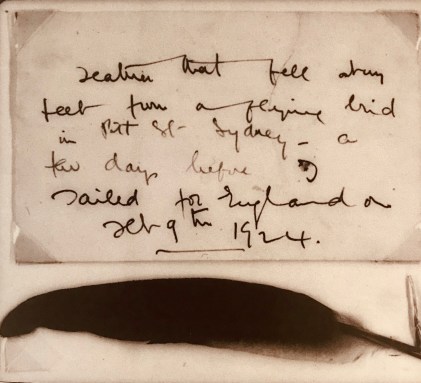 Feather that fell at my
feet from a flying bird
in Pitt St - Sydney - a
few days before I
sailed for England on
Feb 9th 1924.